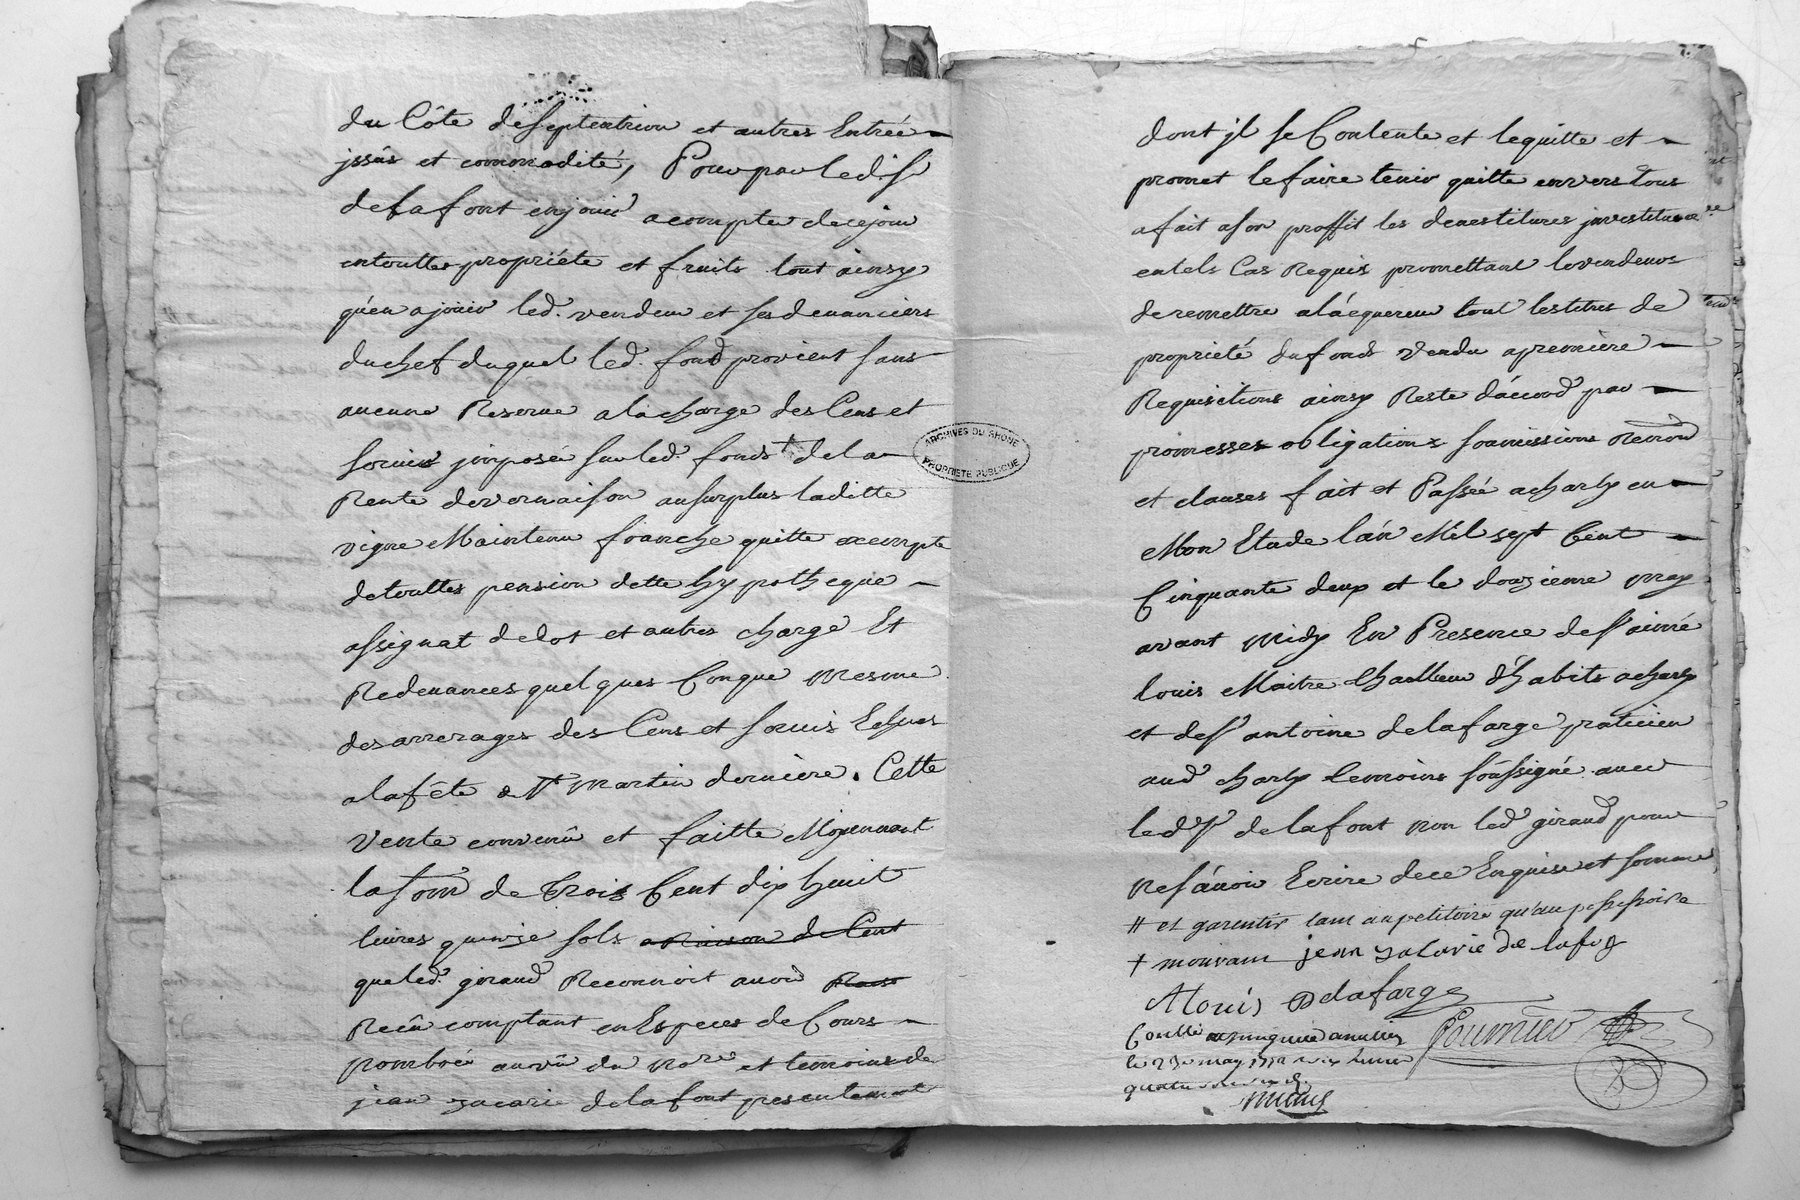 du Côte de septentrion et autres Entrée
jssûs et commodité, Pour par ledi Sr
delafont enjouir a compter decejour
entouttes propriéte et fruits tout áinsy
qúen a joüir led. vendeur et ses devanciers
duchef duquel led. fond provient sans
aucune Reserve a la charge des Cens et
servis jmposée sur led. fonds † de la
Rente devernaison ausurplus laditte
vigne Maintenu franche quitte exempte
detouttes pension dette hypotheque
assignat dedot et autres charge Et
Redevances quelques Conque mesme
des arrerages des Cens et servis Echus
alafête de st martin dernière. Cette
Vente convenû et faitte Moyennant
la som de trois Cent dix huit
livres quinze sols a Raison de Cent
que led. giraud Reconnoit avoir
Recû comptant en Especes de Cours
nombrée auvû du nore et temoins de
jean zacarie delafont presentement
ARCHIVES DU RHONE
PROPRIETE PUBLIQUE
dont jl se Contente et lequitte et
promet le faire tenir quitte envers tous
a fait a son proffit les devestitures jnvestitures
entels Cas Requis promettant levendeur
de remettre aláequereur tout lestitres de
propriété du fonds vendu a premiere
Requisitions ainsy Reste dáccord par
promesses obligations soumissions Renond
et clauses fait et Passée acharly en
Mon Etude lán Mil sept Cent
Cinquante deux et le douzieme may
avant midy En Presence de sr aimé
louis Maitre tailleur d'habits acharly
et de sr antoine delafarge praticien
aud charly temoins soussigné avec
led sr delafont non led giraud pour
ne sávoir Ecrire dece Enquis et somme
# et garentir tant au petitoire qu'au possessoire
† mouvant jean zacarie de lafon
A Louis Delafarge
Conllé
le 23e may 1752
quatre
Fournier